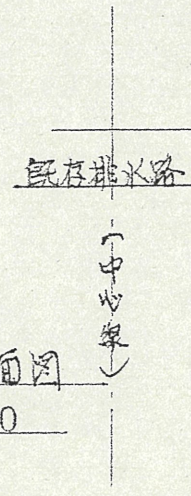 既存排水路
(中心線)
面図
0